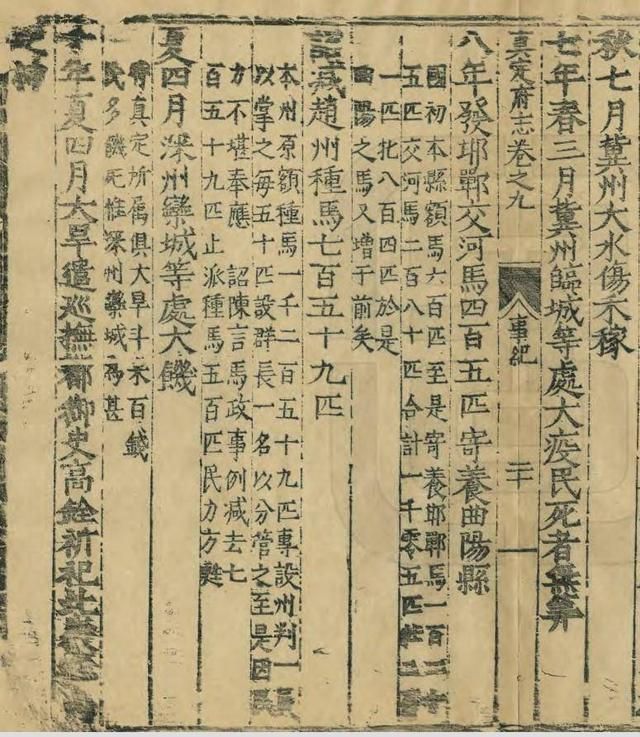 秋七月冀州大水傷禾稼
七年春三月冀州臨城等處大疫民死者無筭
真定府志卷之九
事紀
二十一
八年發邯鄲交河馬四百五匹寄養曲陽縣
國初本縣額馬六百匹至是寄養邯鄲馬一百二十
五匹交河馬二百八十匹合計一千零五匹
一匹牝八百四匹於是
曲陽之馬又增于前矣
詔减趙州種馬七百五十九匹
本州原額種馬一千二百五十九匹專設州判一員
以掌之每五十匹設群長一名以分管之至是因
方不堪奉應 詔陳言馬政事例减去七
百五十九匹止派種馬五百匹民力方甦
夏四月深州欒城等處大饑
時真定所屬俱大旱斗米百錢
民多饑死惟深州欒城為甚
十年夏四月大旱遣巡撫都御史高銓祈祀北嶽
之神